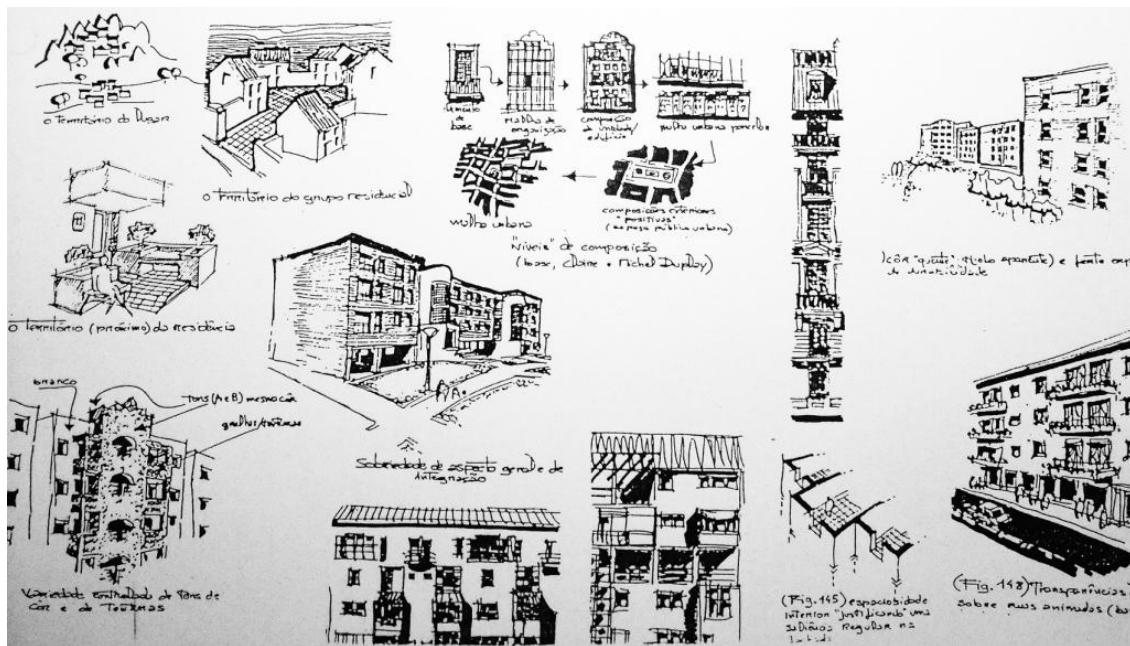 o Território do Lugar
o Território do grupo residencial
o Território (próximo) da residência
elemento de
base
malha de
organização
composição
edifício
malha urbana parcelar
malha urbana
composições exteriores
"positivas"
(espaço público urbano)
"Níveis" de composição
(base, Claire e Michel Duplay)
e
branco
Tons (A e B) mesma côr
Variedade controlada de Tons de
Côr e de Texturas
Sobriedade de aspecto geral e de
integração
(Fig. 145) espaciosidade
interior "justificando" uma
regular na
(Fig. 148) Transparências
sobre ruas animadas